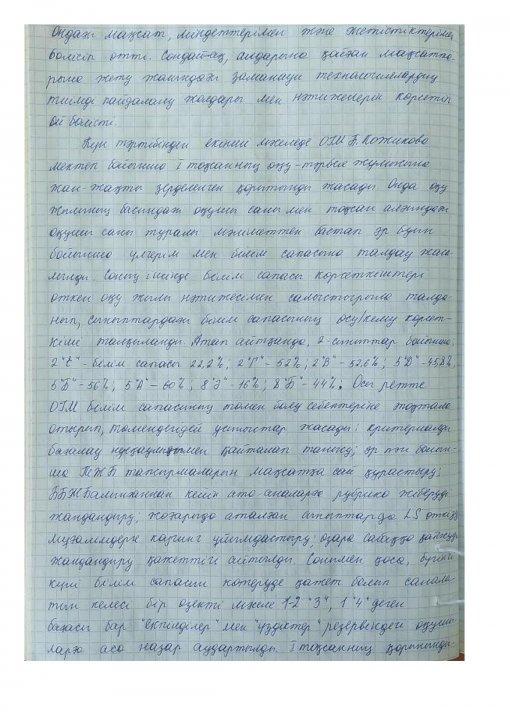 Ондағы мақсат, міндеттерімен және жетістіктерімен
бөлісіп өтті. Сондай-ақ, алдарына қойған мақсатта-
рына жету жолындағы заманауи технологиялардың
тиімді пайдалану жолдары мен нәтижелерін көрсетіп
ой бөлісті.
Күн тәртібіндегі екінші мәселеде ОІМ Б. Кожикова
мектеп бойынша І тоқсанның оқу-тәрбие жұмысына
жан-жақты зерделенген қорытынды жасады. Онда оқу
жылының басындағы оқушы саны мен тоқсан аяғындағы
оқушы саны туралы мәліметтен бастап әр буын
бойынша үлгерім мен білім сапасына талдау жаса-
лынды. Соның ішінде білім сапасы көрсеткіштері
өткен оқу жылы нәтижесімен салыстырыла талда-
нып, сыныптардағы білім сапасының өсу/кему көрсет-
кіші талқыланды. Атап айтқанда, 2-сыныптар бойынша,
2 "Е" - білім сапасы 22,2%; 2 "Г" - 52%; 2 "В" - 52,6%; 5 "Д" - 45,8%,
5 "Б" - 56%; 5 "Ә" - 60%; 8 "Ә" - 16%; 8 "Б" - 44%. Осы ретте
ОІМ білім сапасының төмен болу себептеріне тоқтала
отырып, төмендегідей ұсыныстар жасады: критериалды
бағалау нұсқаулықпен қайталап танысу; әр пән бойын-
ша ТЖБ тапсырмаларын мақсатқа сай құрастыру;
БЖБ алынғаннан кейін ата-аналарға рубрика жіберуді
жандандыру, жоғарыда аталған сыныптарда LS өткізу
мұғалімдерге коучинг ұйымдастыру; өзара сабаққа қатысуды
жандандыру қажеттігі айтылды. Сонымен қоса, бүгінгі
күні білім сапасын көтеруде қажет болып санала-
тын келесі бір өзекті мәселе 1-2 "3", 1 "4" деген
бағасы бар "екпінділер" мен "үздіктер" резервіндегі оқушы-
ларға аса назар аудартылды. І тоқсанның қорытынды-